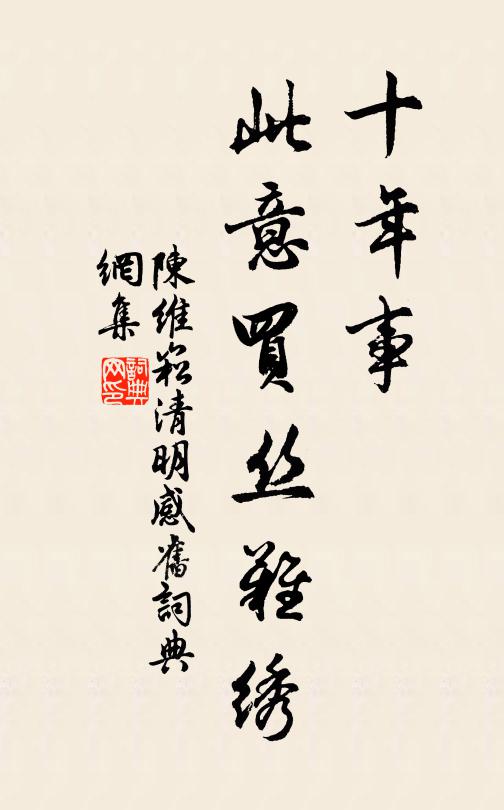 十年事
此意買丝難绣
陳維崧清明感舊詞典
網集
詞典
网印